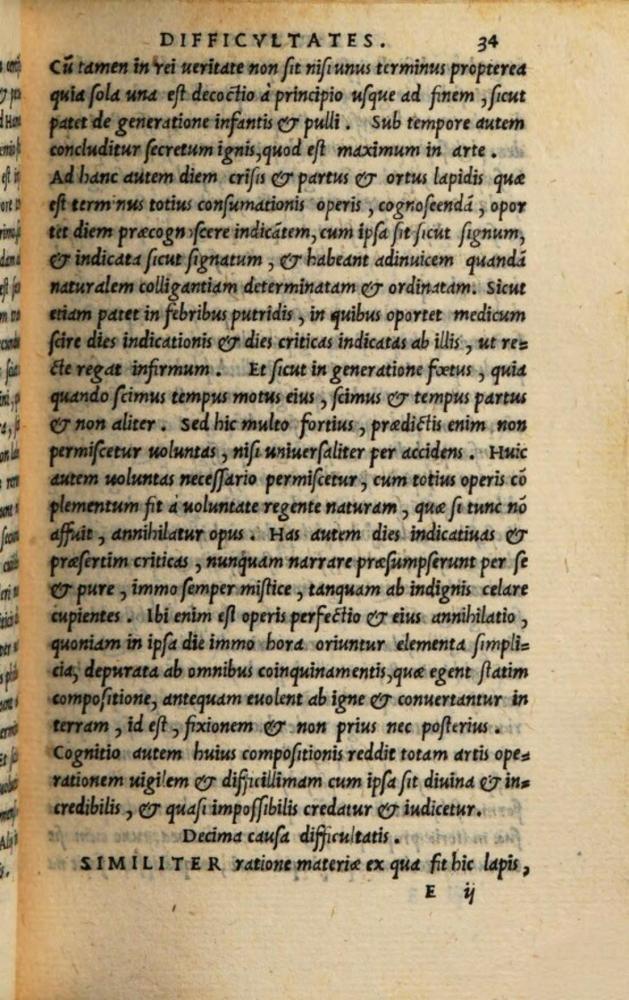 DIFFICVLTATES. 34
Cū tamen in rei ueritate non sit nisi unus terminus propterea
quia sola una est decoctio à principio usque ad finem, sicut
patet de generatione infantis & pulli. Sub tempore autem
concluditur secretum ignis, quod est maximum in arte.
Ad hanc autem diem crisis & partus & ortus lapidis quæ
est term nus totius consumationis operis, cognoscendā, opor
tet diem præcognoscere indicātem, cum ipsa sit sicut signum,
& indicata sicut signatum, & habeant adinuicem quandā
naturalem colligantiam determinatam & ordinatam. Sicut
etiam patet in febribus putridis, in quibus oportet medicum
scire dies indicationis & dies criticas indicatas ab illis, ut re=
cte regat infirmum. Et sicut in generatione fœtus, quia
quando scimus tempus motus eius, scimus & tempus partus
& non aliter. Sed hic multo fortius, prædictis enim non
permiscetur uoluntas, nisi uniuersaliter per accidens. Huic
autem uoluntas necessario permiscetur, cum totius operis cō
plementum fit à uoluntate regente naturam, quæ si tunc nō
affuit, annihilatur opus. Has autem dies indicatiuas &
præsertim criticas, nunquam narrare præsumpserunt per se
& pure, immo semper mistice, tanquam ab indignis celare
cupientes. Ibi enim est operis perfectio & eius annihilatio,
quoniam in ipsa die immo hora oriuntur elementa simpli=
cia, depurata ab omnibus coinquinamentis, quæ egent statim
compositione, antequam euolent ab igne & conuertantur in
terram, id est, fixionem & non prius nec posterius.
Cognitio autem huius compositionis reddit totam artis ope=
rationem uigilem & difficillimam cum ipsa sit diuina & in=
credibilis, & quasi impossibilis credatur & iudicetur.
Decima causa difficultatis.
SIMILITER ratione materiæ ex qua fit hic lapis,
E ij